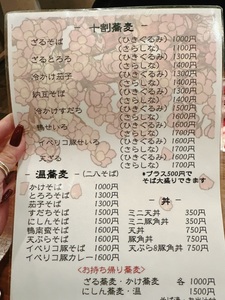 十割蕎麦 -
ざるそば (ひきぐるみ) 1000円
(さらしな) 1100円
ざるとろろ (ひきぐるみ) 1300円
(さらしな) 1400円
冷かけ茄子 (ひきぐるみ) 1300円
(さらしな)
納豆そば (ひきぐるみ)
(さらしな)
冷かけすだち (ひきぐるみ)
(さらしな)
鴨せいろ (ひきぐるみ)
(さらしな)
イベリコ豚せいろ (ひきぐるみ)
(さらしな)
天ざる (ひきぐるみ)
(さらしな)
- 温蕎麦 - (二八そば)
かけそば 1000円
とろろそば 1300円
茄子そば 1300円
すだちそば 1500円
にしんそば 1500円
鴨南蛮そば 1600円
天ぷらそば 1600円
イベリコ豚そば 1600円
イベリコ豚カレー 1600円
*プラス500円で
そば大盛りできます
- 丼 -
ミニ天丼 350円
ミニ豚角丼 350円
天丼 750円
豚角丼 750円
天ぷら8豚角丼 750円
<お持ち帰り蕎麦>
ざる蕎麦・かけ蕎麦 各 1000円
にしん蕎麦・温 1500円